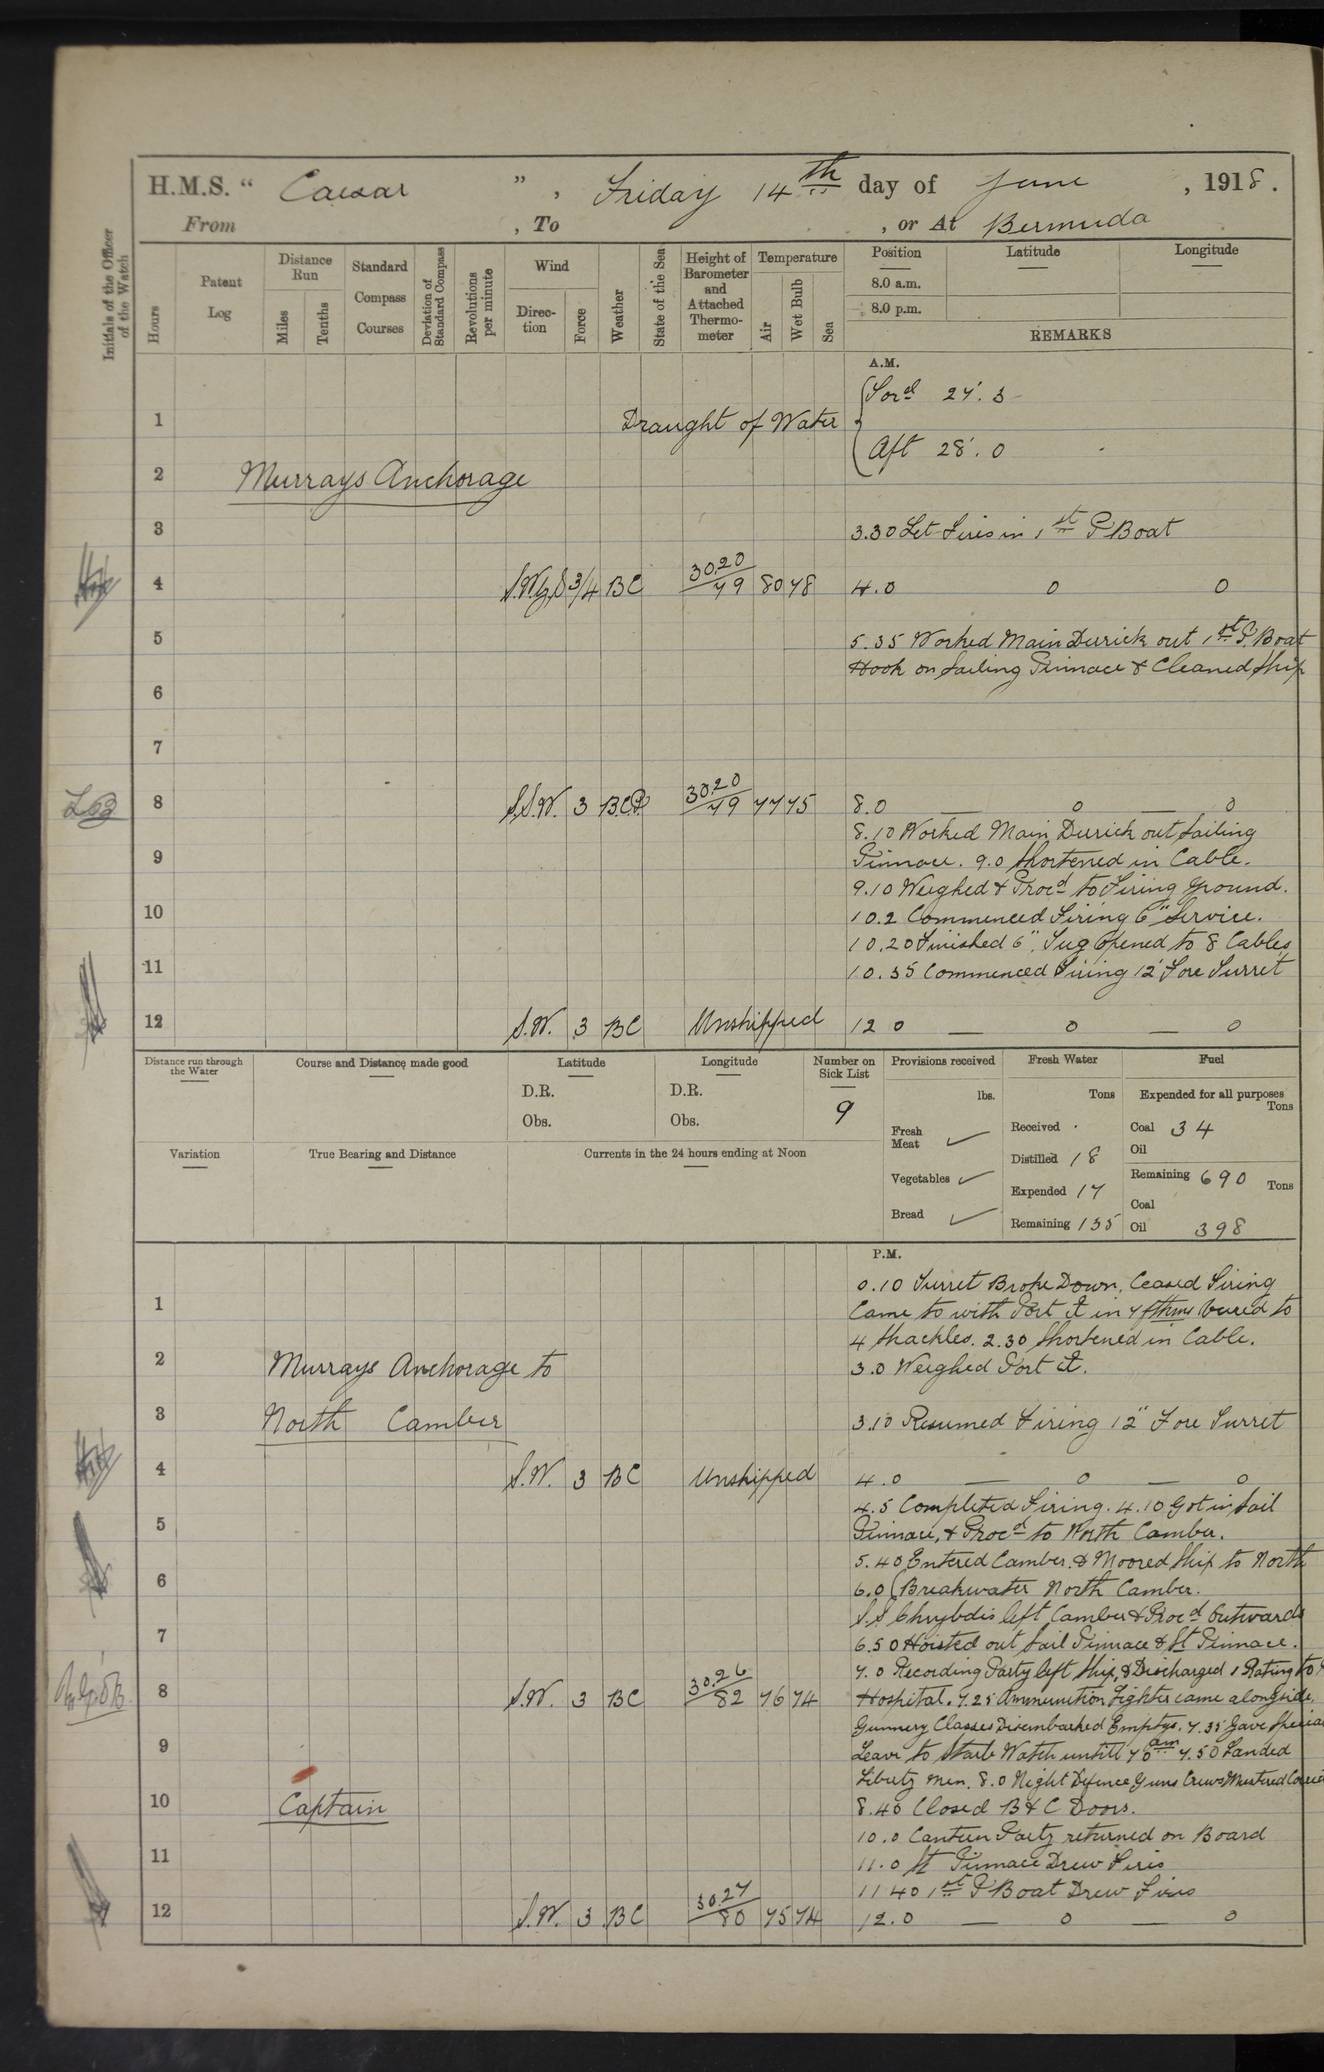 H.M.S. “ Caesar ” , Friday 14th day of June , 1918 .
From , To , or At Bermuda
Initials of the Officer of the Watch
Hours
Patent Log
Distance Run
Miles
Tenths
Standard Compass Courses
Deviation of Standard Compass
Revolutions per minute
Wind
Direction
Force
Weather
State of the Sea
Height of Barometer and Attached Thermometer
Temperature
Air
Wet Bulb
Sea
Position
Latitude
Longitude
8.0 a.m.
8.0 p.m.
REMARKS
A.M.
Ford 27'. 3
1 Draught of Water
Aft 28'. 0
2 Murrays Anchorage
3 3.30 Let Fires in 1st P Boat
4 S.W.b.S 3/4 BC 30.20/79 80 78 4.0 0 0
5 5.35 Worked Main Derrick out 1st P. Boat
Hook on Sailing Pinnace & Cleaned Ship
6
7
8 S.S.W. 3 B.C.P. 30.20/79 77 75 8.0 — 0 — 0
8.10 Worked Main Derrick out Sailing
9 Pinnace. 9.0 Shortened in Cable.
9.10 Weighed & Procd to Firing Ground.
10 10.2 Commenced Firing 6" Service.
10.20 Finished 6". Tug Opened to 8 Cables
11 10.35 Commenced Firing 12" Fore Turret
12 S.W. 3 BC Unshipped 12 0 — 0 — 0
Distance run through the Water
Course and Distance made good
Latitude
D.R.
Obs.
Longitude
D.R.
Obs.
Number on Sick List
9
Provisions received
lbs.
Fresh Meat ✓
Vegetables ✓
Bread ✓
Fresh Water
Tons
Received .
Distilled 18
Expended 17
Remaining 135
Fuel
Expended for all purposes
Tons
Coal 34
Oil
Remaining 690 Tons
Coal
Oil 398
Variation
True Bearing and Distance
Currents in the 24 hours ending at Noon
P.M.
0.10 Turret Broke Down, Ceased Firing
1 Came to with Port in 7 fthms veered to
4 Shackles. 2.30 Shortened in Cable.
2 Murrays Anchorage to 3.0 Weighed Port
3 North Camber 3.10 Resumed Firing 12" Fore Turret
4 S.W. 3 BC Unshipped 4.0 — 0 — 0
4.5 Completed Firing. 4.10 Got in Sail
5 Pinnace, & Procd to North Camber.
5.40 Entered Camber & Moored Ship to North
6 6.0 Breakwater North Camber.
S.S Chrybdis left Camber & Procd Outwards
7 6.50 Hoisted out Sail Pinnace & St Pinnace.
7.0 Recording Party left Ship, & Discharged 1 Rating to
8 S.W. 3 BC 30.26/82 76 74 Hospital. 7.25 Ammunition Lighter came alongside.
Gunnery Classes Disembarked Emptys. 7.35 Gave Special
9 Leave to Starb Watch untill 7 0 am 7.50 Landed
Liberty men. 8.0 Night Defence Guns Crews Mustered
10 Captain 8.40 Closed B & C Doors.
10.0 Canteen Party returned on Board
11 11.0 St Pinnace Drew Fires
11 40 1st P Boat Drew Fires
12 S.W. 3 BC 30.27/80 75 74 12.0 — 0 — 0